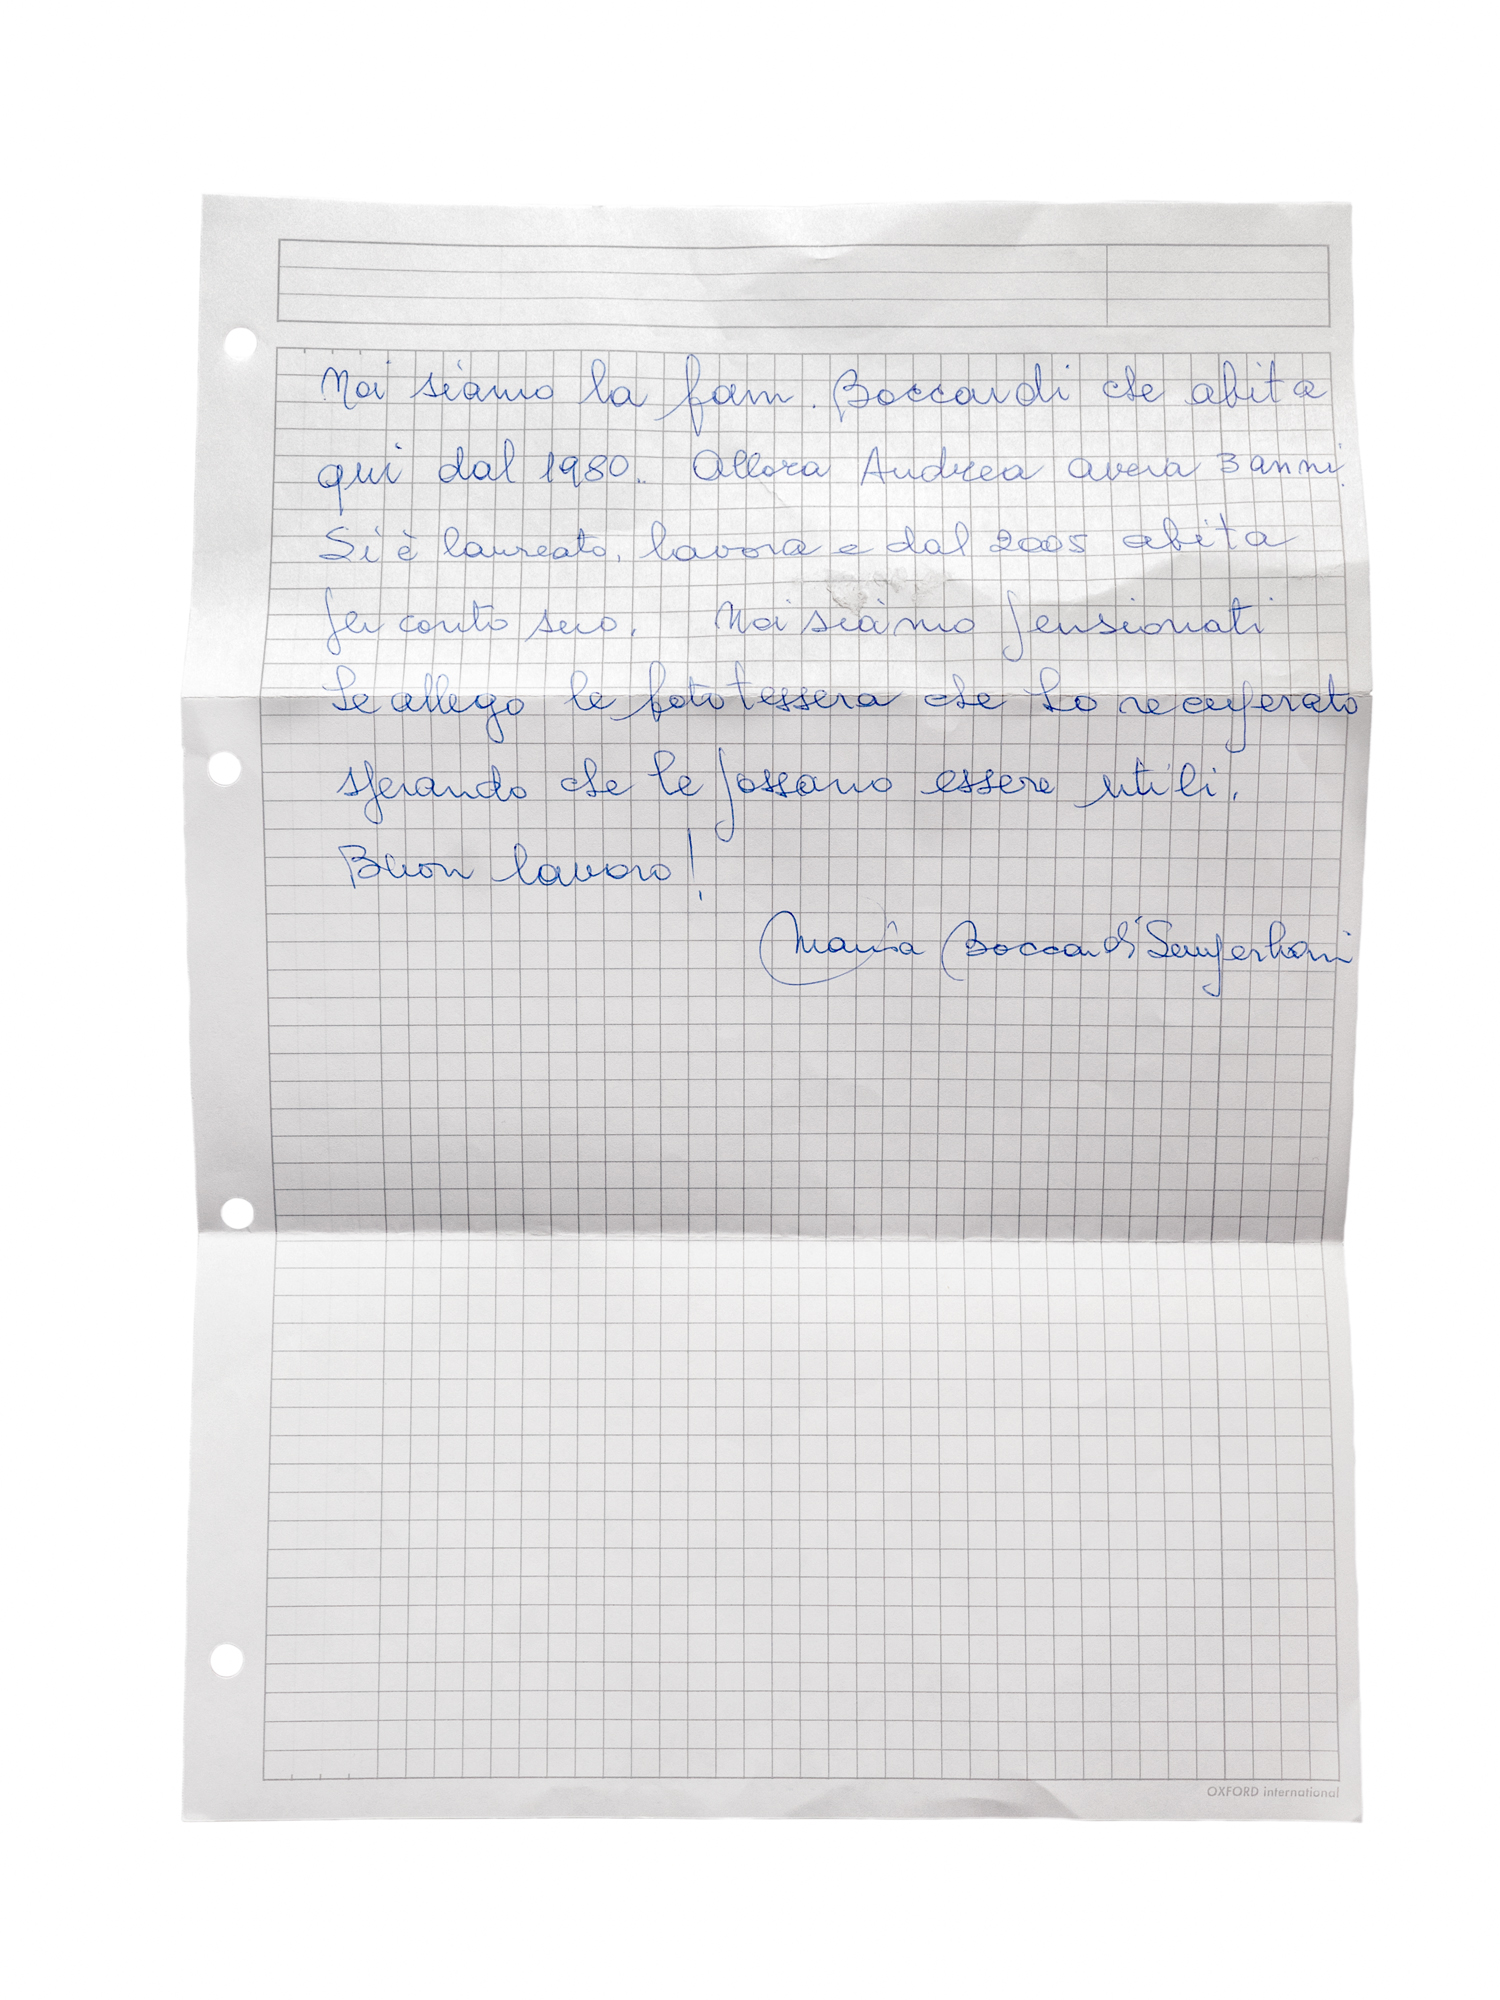 Noi siamo la fam. Boccardi che abita
qui dal 1980. Allora Andrea aveva 3 anni.
Si è laureato, lavora e dal 2005 abita
per conto suo. Noi siamo pensionati
Le allego le foto tessera che ho recuperato
sperando che le possano essere utili.
Buon lavoro!
Boccardi
OXFORD international